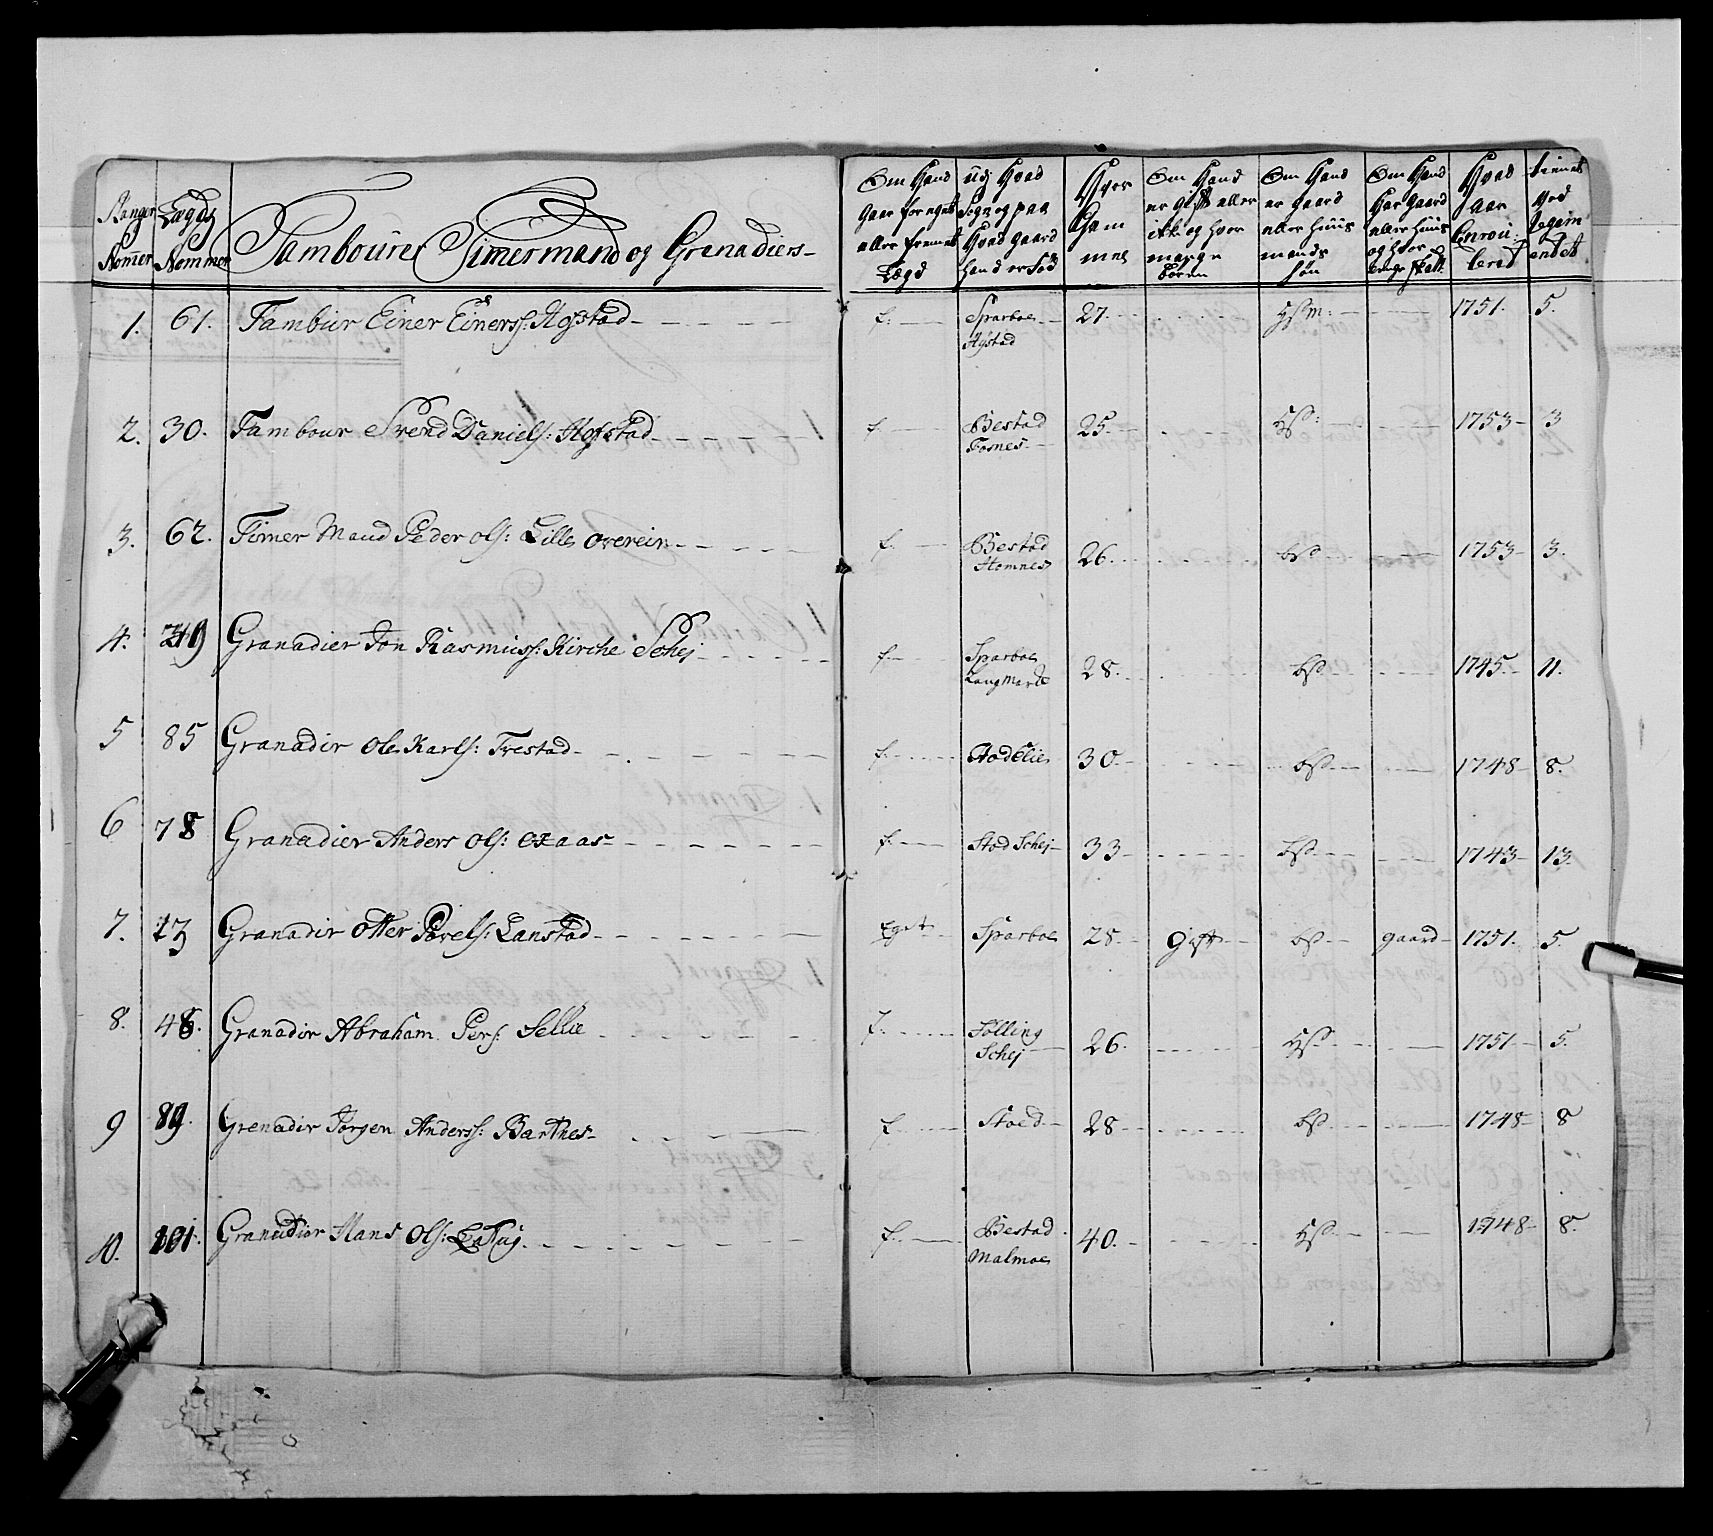 Ranger Nomer
Lægds Nommer
Tambourer Timermand og Granadiers
Om Hand gaar for eget eller fremet Lægd
udj Hvad Sogn og paa Hvad gaard hand er fød
Hvor gam mel
Om Hand er gift eller ikke og hvor mange Børen
Om Hand er gaard eller huus mands søn
Om Hand Har gaard eller huus og hvor
Hvad Aar Enrou leret
tienet Ved Regim entet
1. 61. Tambur Einer Einerss: Agstad f: Sparboe Agstad 27. Hsm: 1751. 5.
2. 30. Tambour Svend Daniels: Hofstad f. Bestad Fosnes 25. Hs: 1753 3
3. 62. Timer Mand Peder ols: Lille overein f. Bestad Homnes 26. bs 1753 3.
4. 49 Granadier Jon Rasmuss: Kirche Schej f. Sparboe 28. bs 1745 11.
5 85 Granadir Ole Karls: Trestad f. Stod Elie 30. bs 1748 8.
6 78 Granadier Anders Ols: f. Stod Schej 33 bs 1743 13.
7. 13 Granadir Otter Povels: Lanstad Eget Sparboe 28 gift bs gaard 1751. 5.
8. 46. Granadir Abraham Pers: Sellie f. Følling Schej 26. Hs 1751 5.
9 89. Grenadir Jørgen Anderss: Barthnes f. Stoed 28 bs 1748 8
10. 101. Granadier Hans Ols: f. Bestad Malmoe 40. Hs 1748 8.